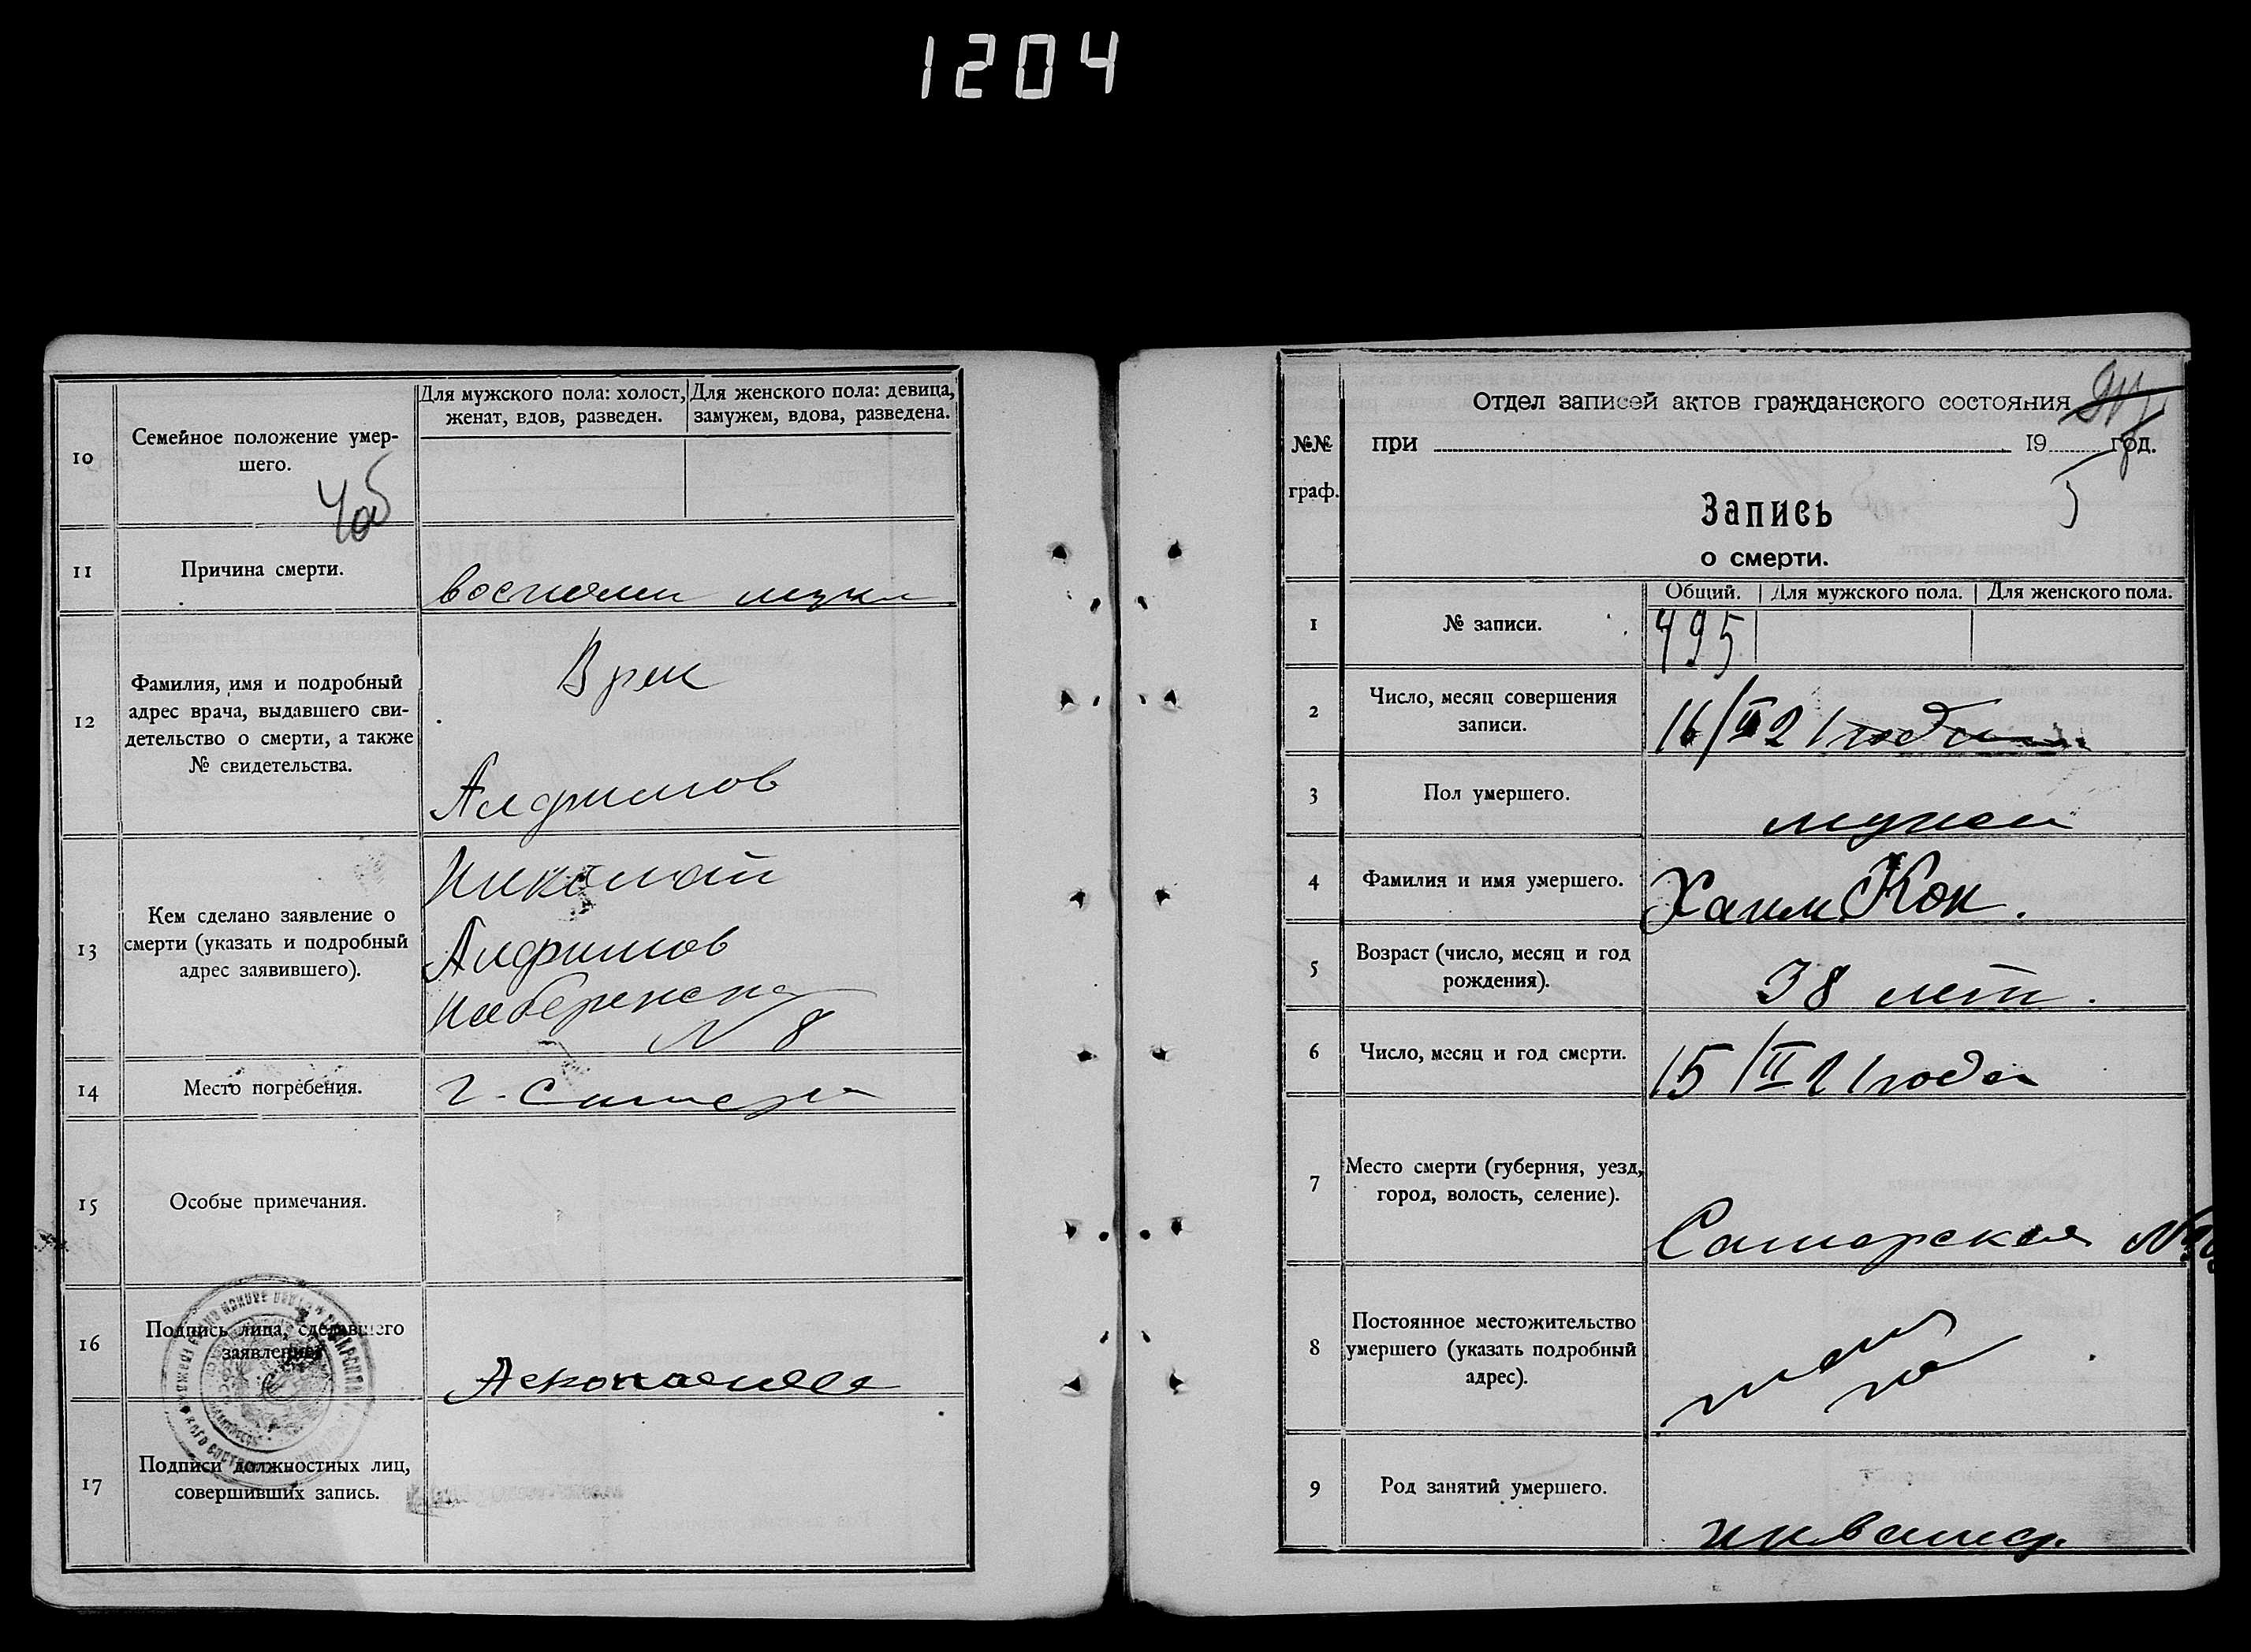 1204
10
Семейное положение умер-
шего.
Для мужского пола: холост,
женат, вдов, разведен.
Для женского пола: девица,
замужем, вдова, разведена.
11
Причина смерти.
12
Фамилия, имя и подробный
адрес врача, выдавшего сви-
детельство о смерти, а также
№ свидетельства.
Алфимов
13
Кем сделано заявление о
смерти (указать и подробный
адрес заявившего).
Николай
Алфимов
N 8
14
Место погребения.
г. Самара
15
Особые примечания.
16
Подпись лица, сделавшего
заявление.
17
Подписи должностных лиц,
совершивших запись.
№№
граф.
Отдел записей актов гражданского состояния
при 19 год.
5
Запись
о смерти.
Общий. Для мужского пола. Для женского пола.
1
№ записи.
495
2
Число, месяц совершения
записи.
16/II 21 года
3
Пол умершего.
4
Фамилия и имя умершего.
Хаим Кон.
5
Возраст (число, месяц и год
рождения).
38 лет.
6
Число, месяц и год смерти.
15/II 21 года
7
Место смерти (губерния, уезд,
город, волость, селение).
Самарская
8
Постоянное местожительство
умершего (указать подробный
адрес).
9
Род занятий умершего.
инвалид.